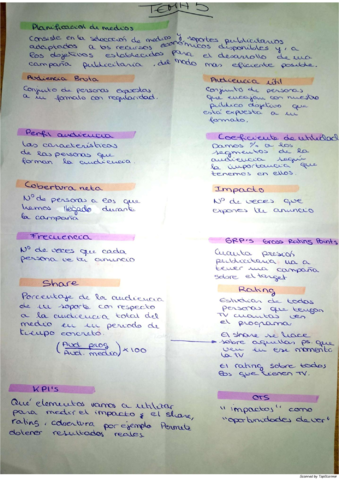 TEMA 5
Planificación de medios
Consiste en la selección de medios y soportes publicitarios
adaptados a los recursos económicos disponibles y, a
los objetivos establecidos para el desarrollo de una
campaña publicitaria, del modo más eficiente posible.
Audiencia Bruta
Conjunto de personas expuestas
a un formato con regularidad.
Perfil audiencia
Las características
de las personas que
forman la audiencia
Cobertura neta
Nº de personas a las que
hemos llegado durante
la campaña
Frecuencia
Nº de veces que cada
persona ve tu anuncio
Share
Porcentaje de la audiencia
de un soporte con respecto
a la audiencia total del
medio en un periodo de
tiempo concreto.
(Aud. prog / Aud. medio) x100
KPI's
Qué elementos vamos a utilizar
para medir el impacto y el share,
rating, cobertura por ejemplo Permite
obtener resultados reales
Audiencia útil
Conjunto de personas
que encajan con nuestro
público objetivo que
está expuesto a un
formato.
Coeficiente de utilización
Damos % a los
segmentos de la
audiencia según
la importancia que
tenemos en ellos
Impacto
Nº de veces que
expones tu anuncio
GRP's Gross Rating Points
Cuanta presión
publicitaria va a
tener una campaña
sobre el target
Rating
Estudias de todas
personas que tengan
TV cuantas ven
el programa
el share se hace
sobre aquellas ps que
ven en ese momento
la TV
el rating sobre todos
los que tienen TV.
OTS
"impactos" como
"oportunidades de ver"
Scanned by TapScanner